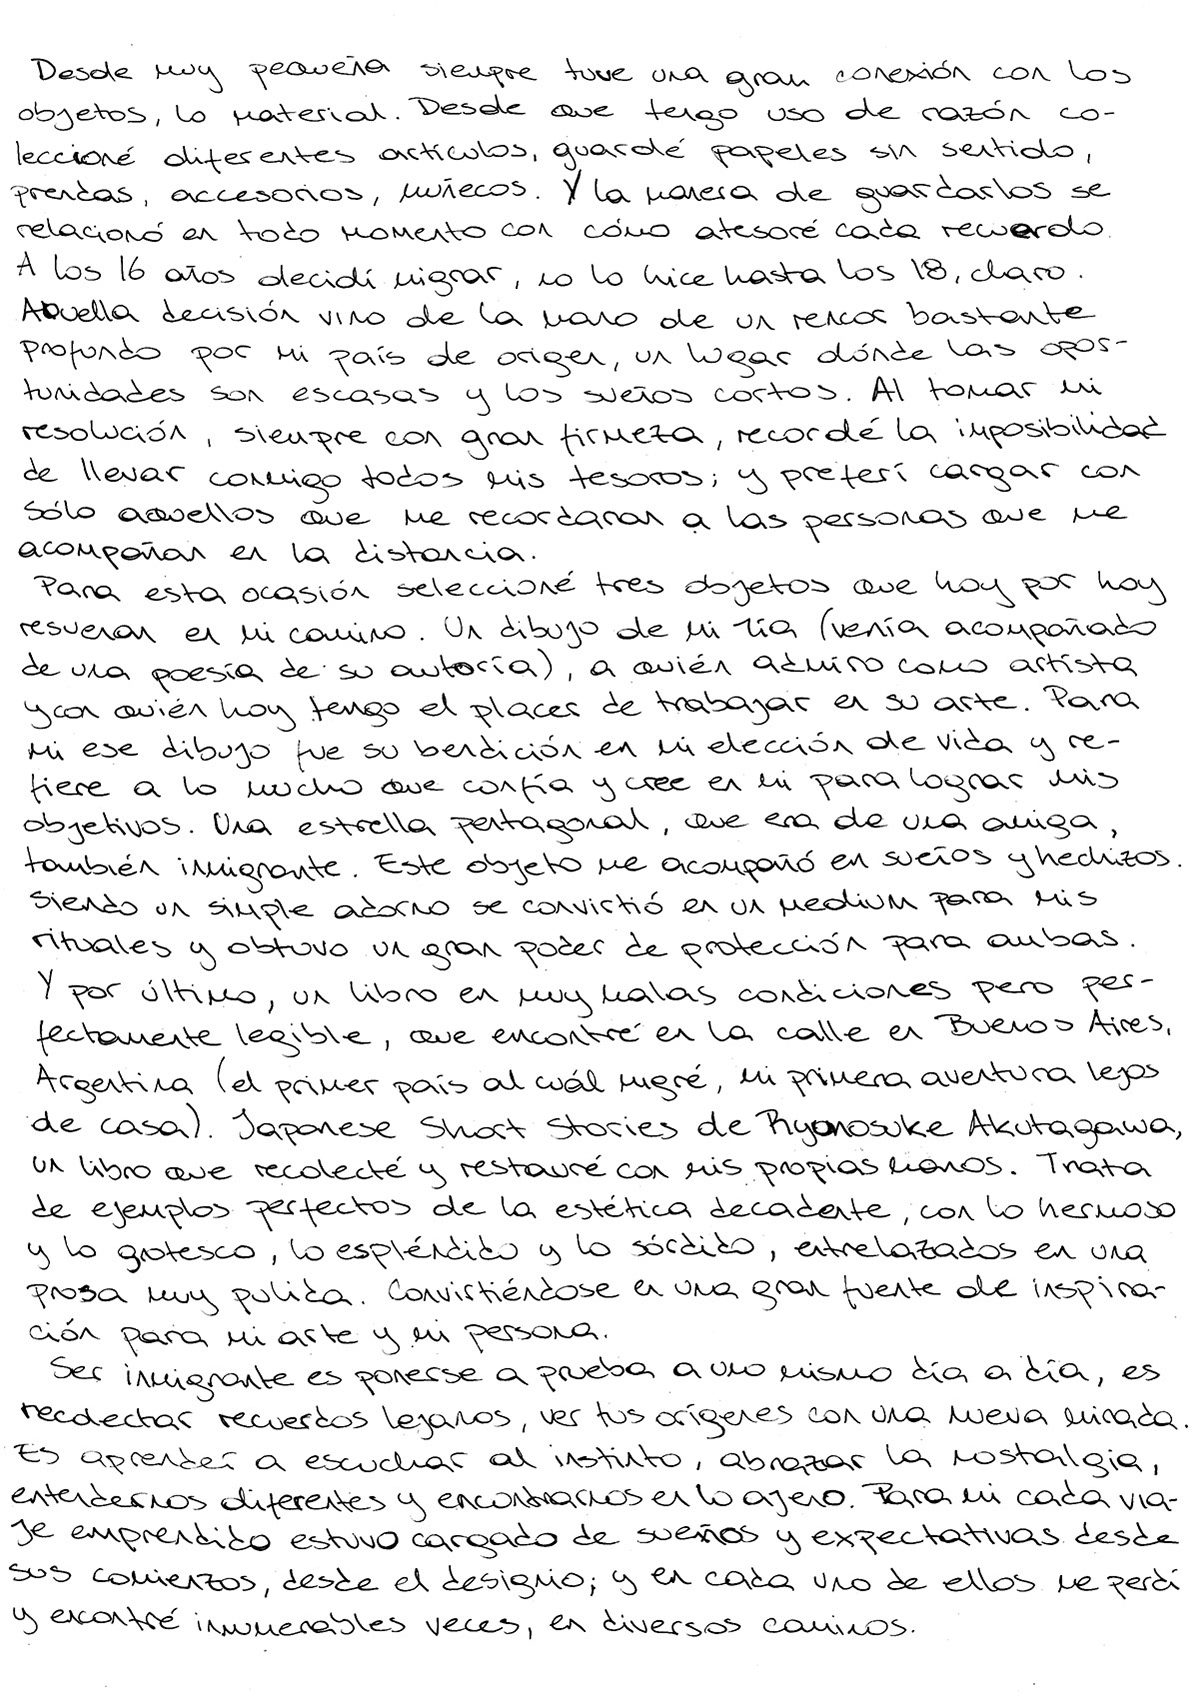 Desde muy pequeña siempre tuve una gran conexión con los
objetos, lo material. Desde que tengo uso de razón co-
leccioné diferentes artículos, guardé papeles sin sentido,
prendas, accesorios, muñecos. Y la manera de guardarlos se
relacionó en todo momento con cómo atesoré cada recuerdo.
A los 16 años decidí migrar, no lo hice hasta los 18, claro.
Aquella decisión vino de la mano de un rencor bastante
profundo por mi país de origen, un lugar dónde las opor-
tunidades son escasas y los sueños cortos. Al tomar mi
resolución, siempre con gran firmeza, recordé la imposibilidad
de llevar conmigo todos mis tesoros; y preferí cargar con
sólo aquellos que me recordaran a las personas que me
acompañan en la distancia.
Para esta ocasión seleccioné tres objetos que hoy por hoy
resuenan en mi camino. Un dibujo de mi tía (venía acompañado
de una poesía de su autoría), a quién admiro como artista
y con quién hoy tengo el placer de trabajar en su arte. Para
mi ese dibujo fue su bendición en mi elección de vida y re-
fiere a lo mucho que confía y cree en mi para lograr mis
objetivos. Una estrella pentagonal, que era de una amiga,
también inmigrante. Este objeto me acompañó en sueños y hechizos.
Siendo un simple adorno se convirtió en un medium para mis
rituales y obtuvo un gran poder de protección para ambas.
Y por último, un libro en muy malas condiciones pero per-
fectamente legible, que encontré en la calle en Buenos Aires,
Argentina (el primer país al cuál migré, mi primera aventura lejos
de casa). Japanese Short Stories de Ryonosuke Akutagawa,
un libro que recolecté y restauré con mis propias manos. Trata
de ejemplos perfectos de la estética decadente, con lo hermoso
y lo grotesco, lo espléndido y lo sórdido, entrelazados en una
prosa muy pulida. Convirtiéndose en una gran fuente de inspira-
ción para mi arte y mi persona.
Ser inmigrante es ponerse a prueba a uno mismo día a día, es
recolectar recuerdos lejanos, ver tus orígenes con una nueva mirada.
Es aprender a escuchar al instinto, abrazar la nostalgia,
entendernos diferentes y encontrarnos en lo ajeno. Para mi cada via-
je emprendido estuvo cargado de sueños y expectativas desde
sus comienzos, desde el designio; y en cada uno de ellos me perdí
y encontré innumerables veces, en diversos caminos.